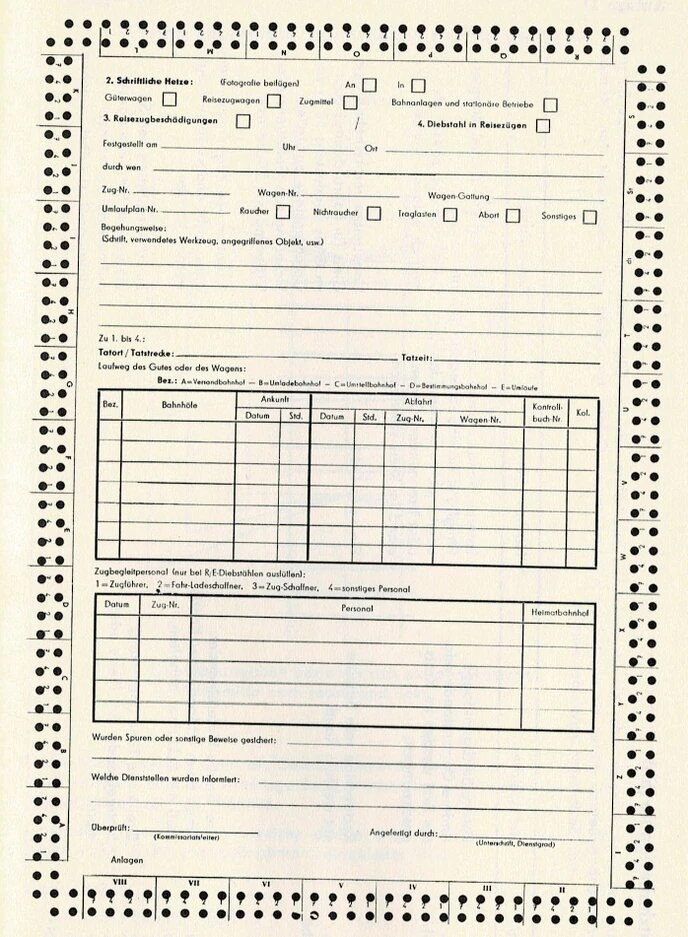 L M N O P Q R
2. Schriftliche Hetze: (Fotografie beifügen) An In
Güterwagen Reisezugwagen Zugmittel Bahnanlagen und stationäre Betriebe
3. Reisezugbeschädigungen / 4. Diebstahl in Reisezügen
Festgestellt am Uhr Ort
durch wen
Zug-Nr. Wagen-Nr. Wagen-Gattung
Umlaufplan-Nr. Raucher Nichtraucher Traglasten Abort Sonstiges
Begehungsweise:
(Schrift, verwendetes Werkzeug, angegriffenes Objekt, usw.)
Zu 1. bis 4.:
Tatort / Tatstrecke: Tatzeit:
Laufweg des Gutes oder des Wagens:
Bez.: A=Versandbahnhof — B=Umladebahnhof — C=Umstellbahnhof — D=Bestimmungsbahnhof — E=Umläufe
Bez. Bahnhöfe Ankunft Abfahrt Kontroll-
buch-Nr. Kol.
Datum Std. Datum Std. Zug-Nr. Wagen-Nr.
Zugbegleitpersonal (nur bei R/E-Diebstählen ausfüllen):
1=Zugführer, 2=Fahr-Ladeschaffner, 3=Zug-Schaffner, 4=sonstiges Personal
Datum Zug-Nr. Personal Heimatbahnhof
Wurden Spuren oder sonstige Beweise gesichert:
Welche Dienststellen wurden informiert:
Überprüft: Angefertigt durch:
(Kommissariatsleiter) (Unterschrift, Dienstgrad)
Anlagen
VIII VII VI V IV III II
K
I
H
G
F
E
D
C
B
A
S
St
T
U
V
W
X
Y
Z